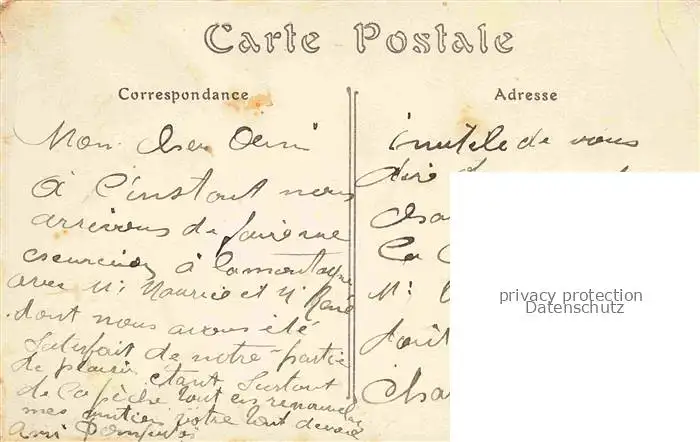 Carte Postale
Correspondance
Adresse
Mon cher Ami
à l'instant nous
arrivons de faire une
escurcion à la montagne
avec Mr Maurice et Mr René
dont nous avons été
satisfait de notre partie
de plaisir étant surtout
de la pèche tout en renouvelan
mes amitiés votre tout dévoué
ami
inutile de vous
dire
la
Mr
privacy protection
Datenschutz